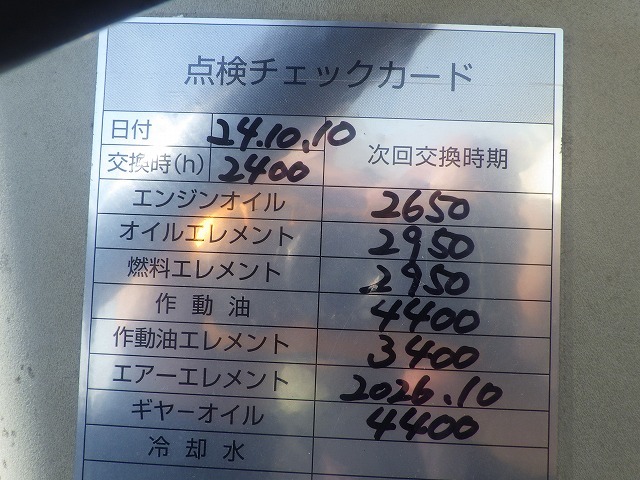 点検チェックカード
日付 24.10.10
交換時(h) 2400 次回交換時期
エンジンオイル 2650
オイルエレメント 2950
燃料エレメント 2950
作動油 4400
作動油エレメント 3400
エアーエレメント 2026.10
ギヤーオイル 4400
冷却水